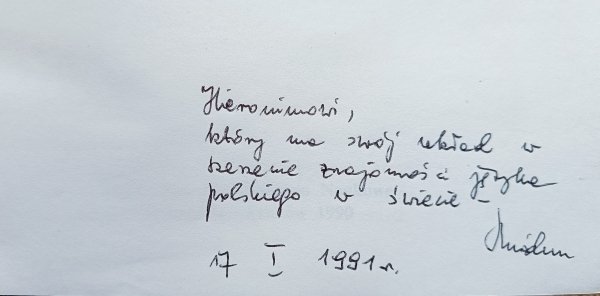 Hieronimowi,
który ma swój wkład w
szerzenie znajomości języka
polskiego w świecie –
17 I 1991 r.